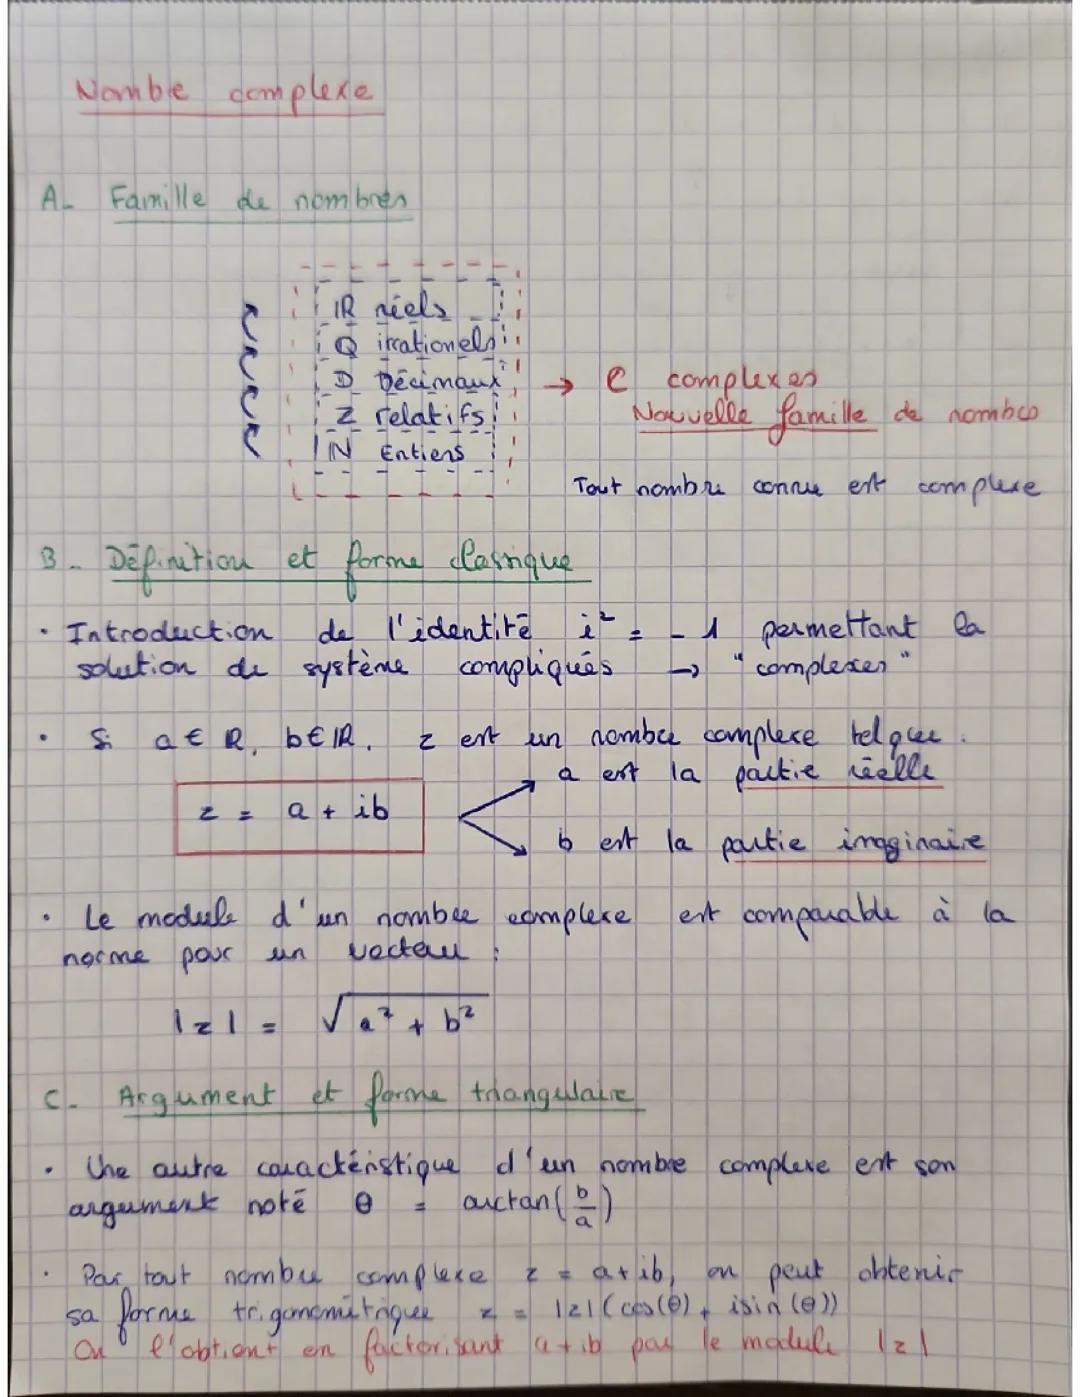 Nombre complexe
A- Famille de nombres
IR réels
Q irrationels
D Décimaux
Z relatifs
IN Entiers
→ C complexes
Nouvelle famille de nombres
Tout nombre connu est complexe
B- Définition et forme classique
• Introduction de l'identité i² = -1 permettant la
solution de système compliqués → "complexes"
• Si a ∈ IR, b ∈ IR, z est un nombre complexe tel que :
a est la partie réelle
z = a + ib
b est la partie imaginaire
• Le module d'un nombre complexe est comparable à la
norme pour un vecteur :
|z| = √a² + b²
C- Argument et forme triangulaire
• Une autre caractéristique d'un nombre complexe est son
argument noté θ = arctan(b/a)
• Par tout nombre complexe z = a+ib, on peut obtenir
sa forme trigonométrique z = |z|(cos(θ) + isin(θ))
On l'obtient en factorisant a+ib par le module |z|